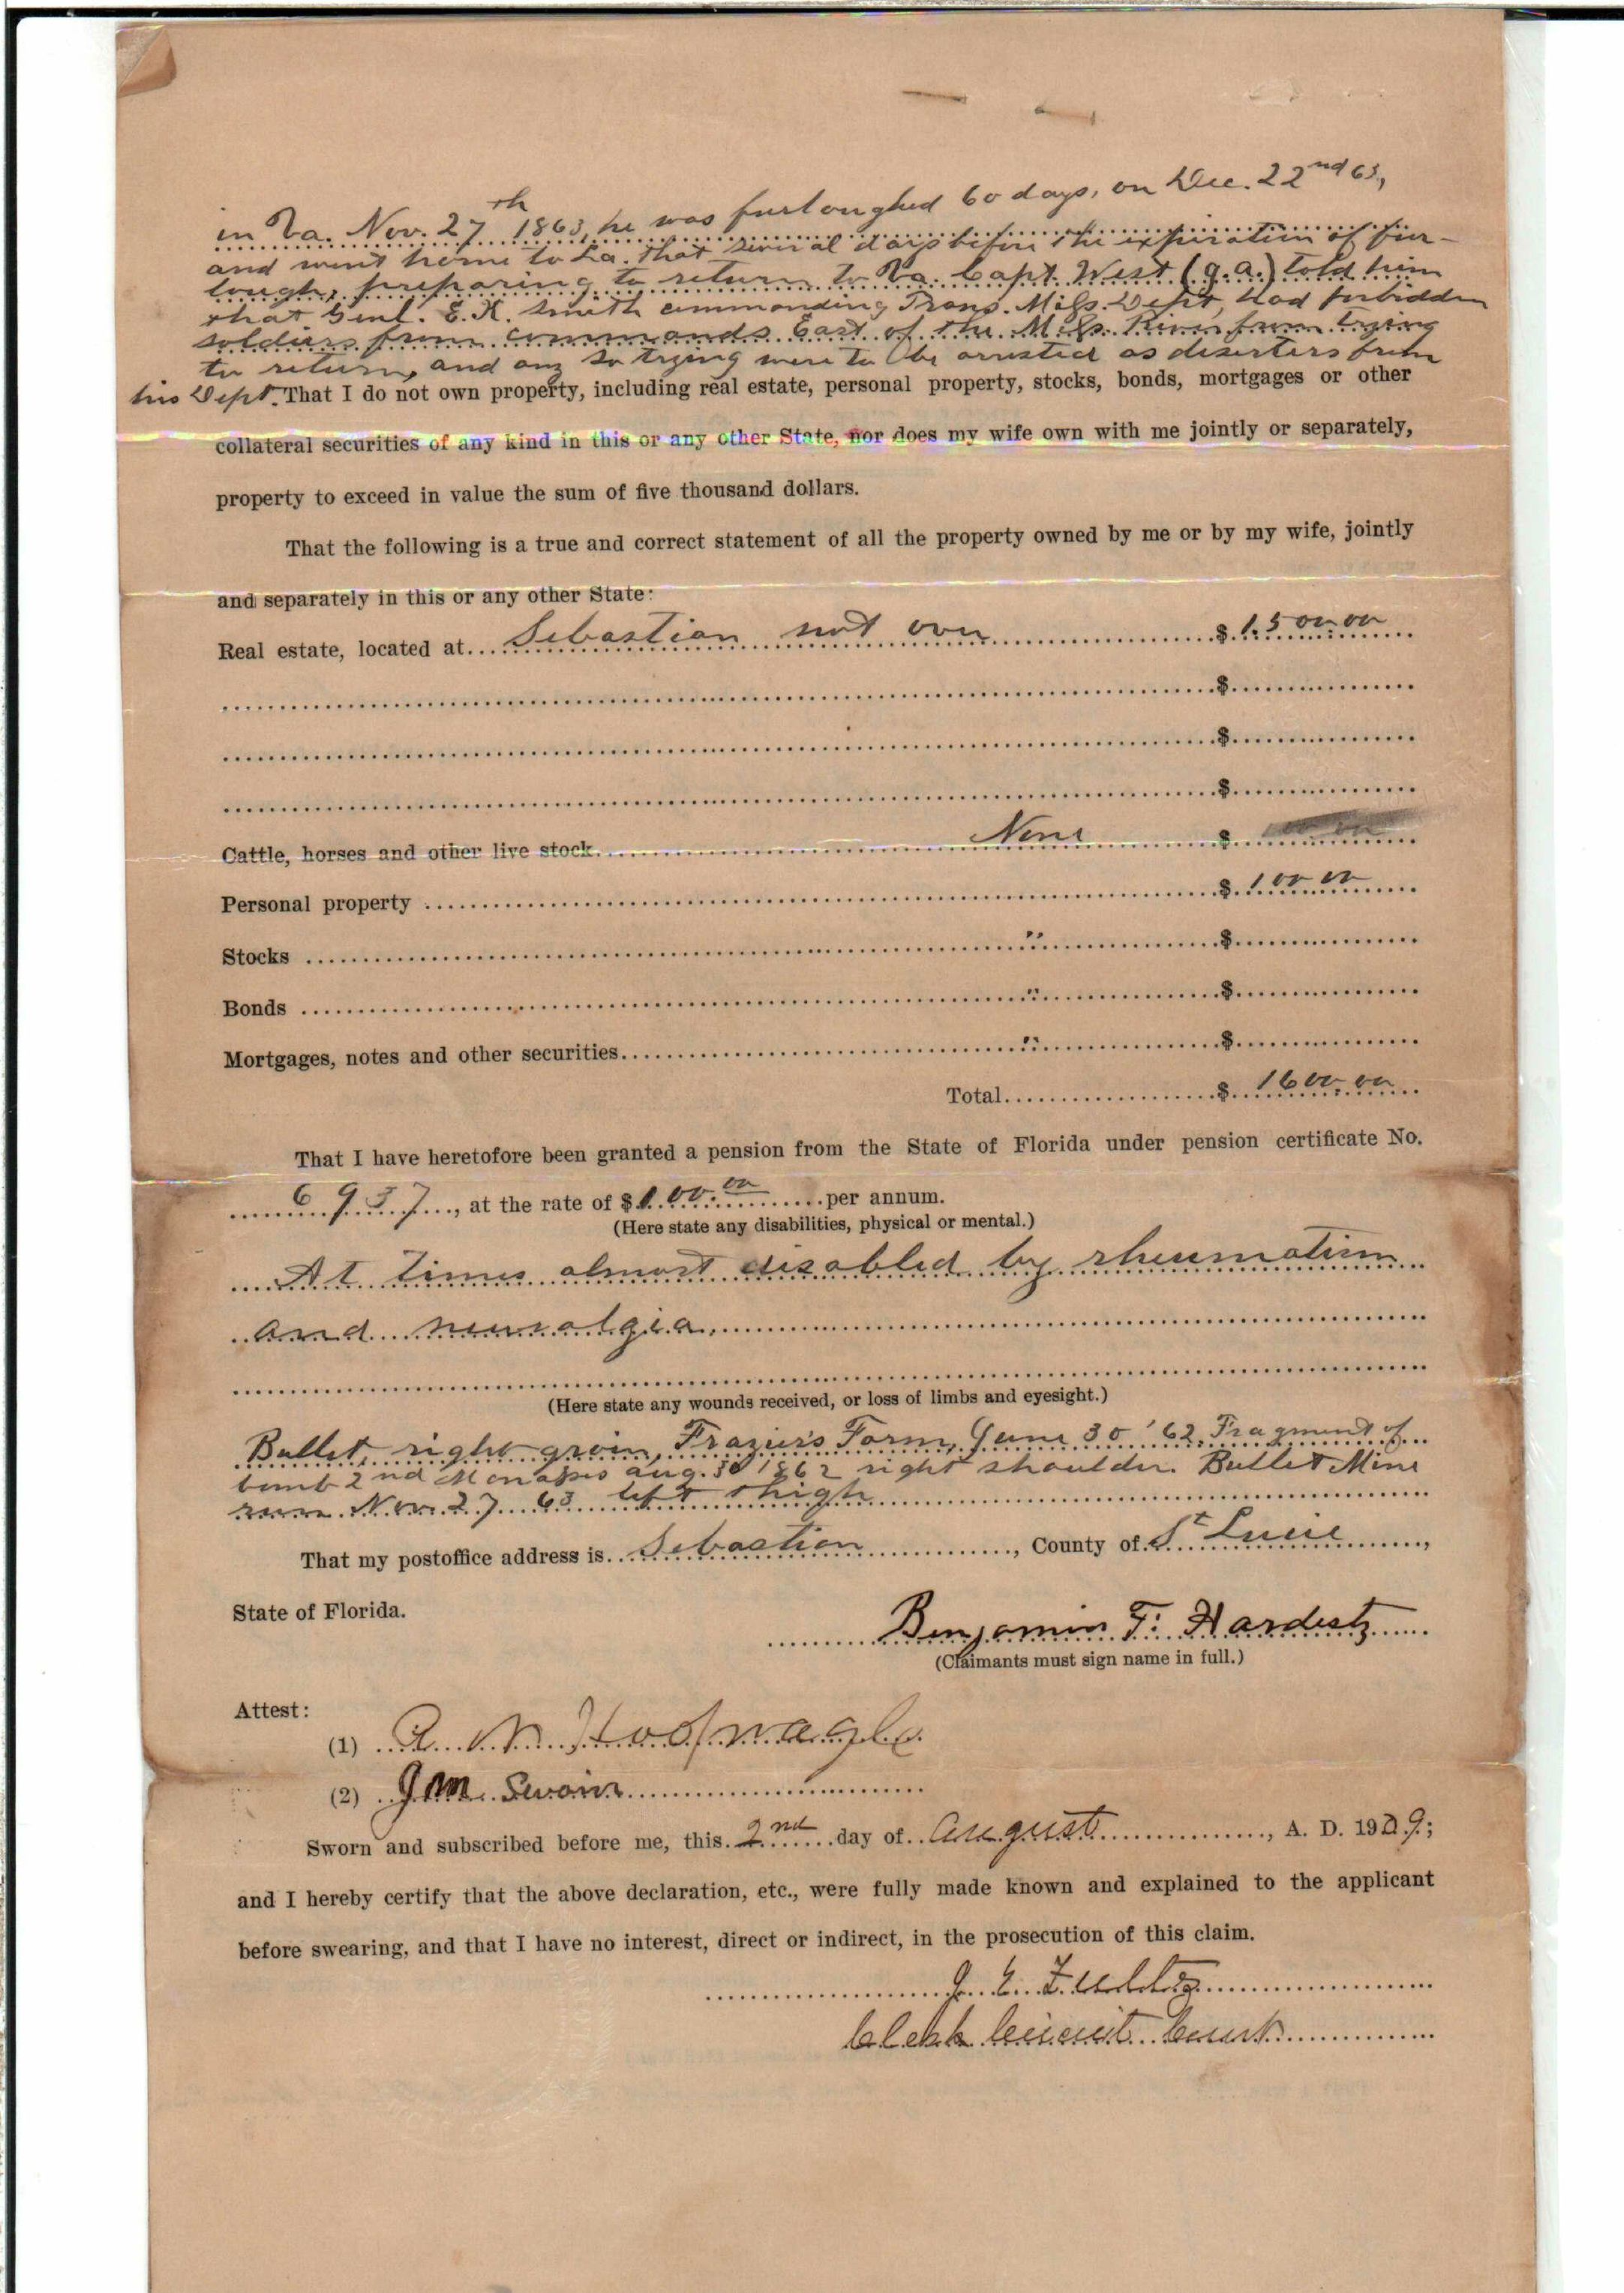 in Va. Nov. 27th 1863, he was furloughed 60 days, on Dec. 22nd 63,
and went home to La. That several days before the expiration of fur-
lough, preparing to return to Va. Capt. West (q.a.) told him
that Genl. E. K. Smith commanding Trans. Miss. Dept, had forbidden
soldiers from commands East of the Miss. River from trying
to return, and any so trying were to be arrested as deserters from
his Dept. That I do not own property, including real estate, personal property, stocks, bonds, mortgages or other
collateral securities of any kind in this or any other State, nor does my wife own with me jointly or separately,
property to exceed in value the sum of five thousand dollars.
That the following is a true and correct statement of all the property owned by me or by my wife, jointly
and separately in this or any other State:
Real estate, located at Sebastian not over $1500.00
$
$
$
Cattle, horses and other live stock None $
Personal property $100.00
Stocks " $
Bonds " $
Mortgages, notes and other securities " $
Total $1600.00
That I have heretofore been granted a pension from the State of Florida under pension certificate No.
6937, at the rate of $100.00 per annum.
(Here state any disabilities, physical or mental.)
At times almost disabled by rheumatism
and neuralgia,
(Here state any wounds received, or loss of limbs and eyesight.)
Bullet, right groin, Frazier's Farm, June 30 '62, Fragment of
bomb 2nd Manasses Aug. 30 1862 right shoulder. Bullet Mine
run Nov. 27 63 left thigh
That my postoffice address is Sebastian, County of St Lucie,
State of Florida.
Benjamin F. Hardesty
(Claimants must sign name in full.)
Attest:
(1) A M Hoofnagle
(2) J M Swain
Sworn and subscribed before me, this 2nd day of August, A. D. 1909;
and I hereby certify that the above declaration, etc., were fully made known and explained to the applicant
before swearing, and that I have no interest, direct or indirect, in the prosecution of this claim.
J. E. Fultz
Clerk Circuit Court